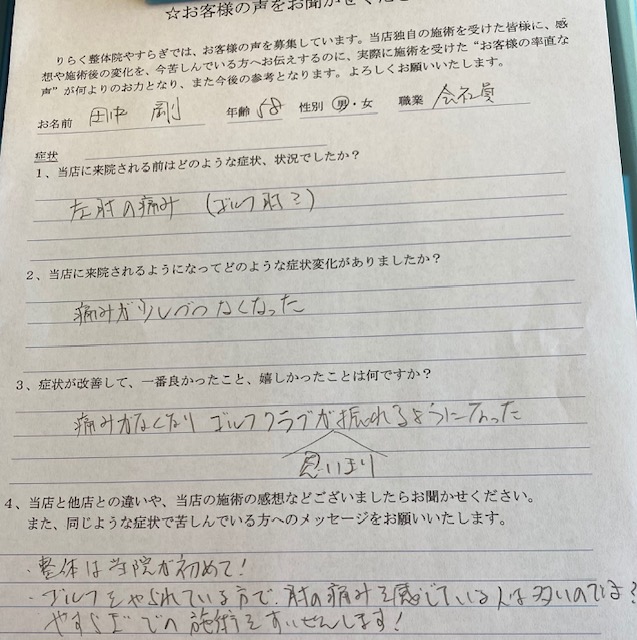 ☆お客様の声をお聞かせくだ
りらく整体院やすらぎでは、お客様の声を募集しています。当店独自の施術を受けた皆様に、感
想や施術後の変化を、今苦しんでいる方へお伝えするのに、実際に施術を受けた“お客様の率直な
声”が何よりのお力となり、また今後の参考となります。よろしくお願いいたします。
お名前 田中 剛 年齢 58 性別 男・女 職業 会社員
症状
1、当店に来院される前はどのような症状、状況でしたか？
左肘の痛み (ゴルフ肘?)
2、当店に来院されるようになってどのような症状変化がありましたか？
痛みが少しづつなくなった
3、症状が改善して、一番良かったこと、嬉しかったことは何ですか？
痛みがなくなり ゴルフクラブが振れるようになった
思いきり
4、当店と他店との違いや、当店の施術の感想などございましたらお聞かせください。
また、同じような症状で苦しんでいる方へのメッセージをお願いいたします。
・整体は当院が初めて!
・ゴルフをやられている方で、肘の痛みを感じている人は多いのでは?
やすらぎでの施術をすいせんします!